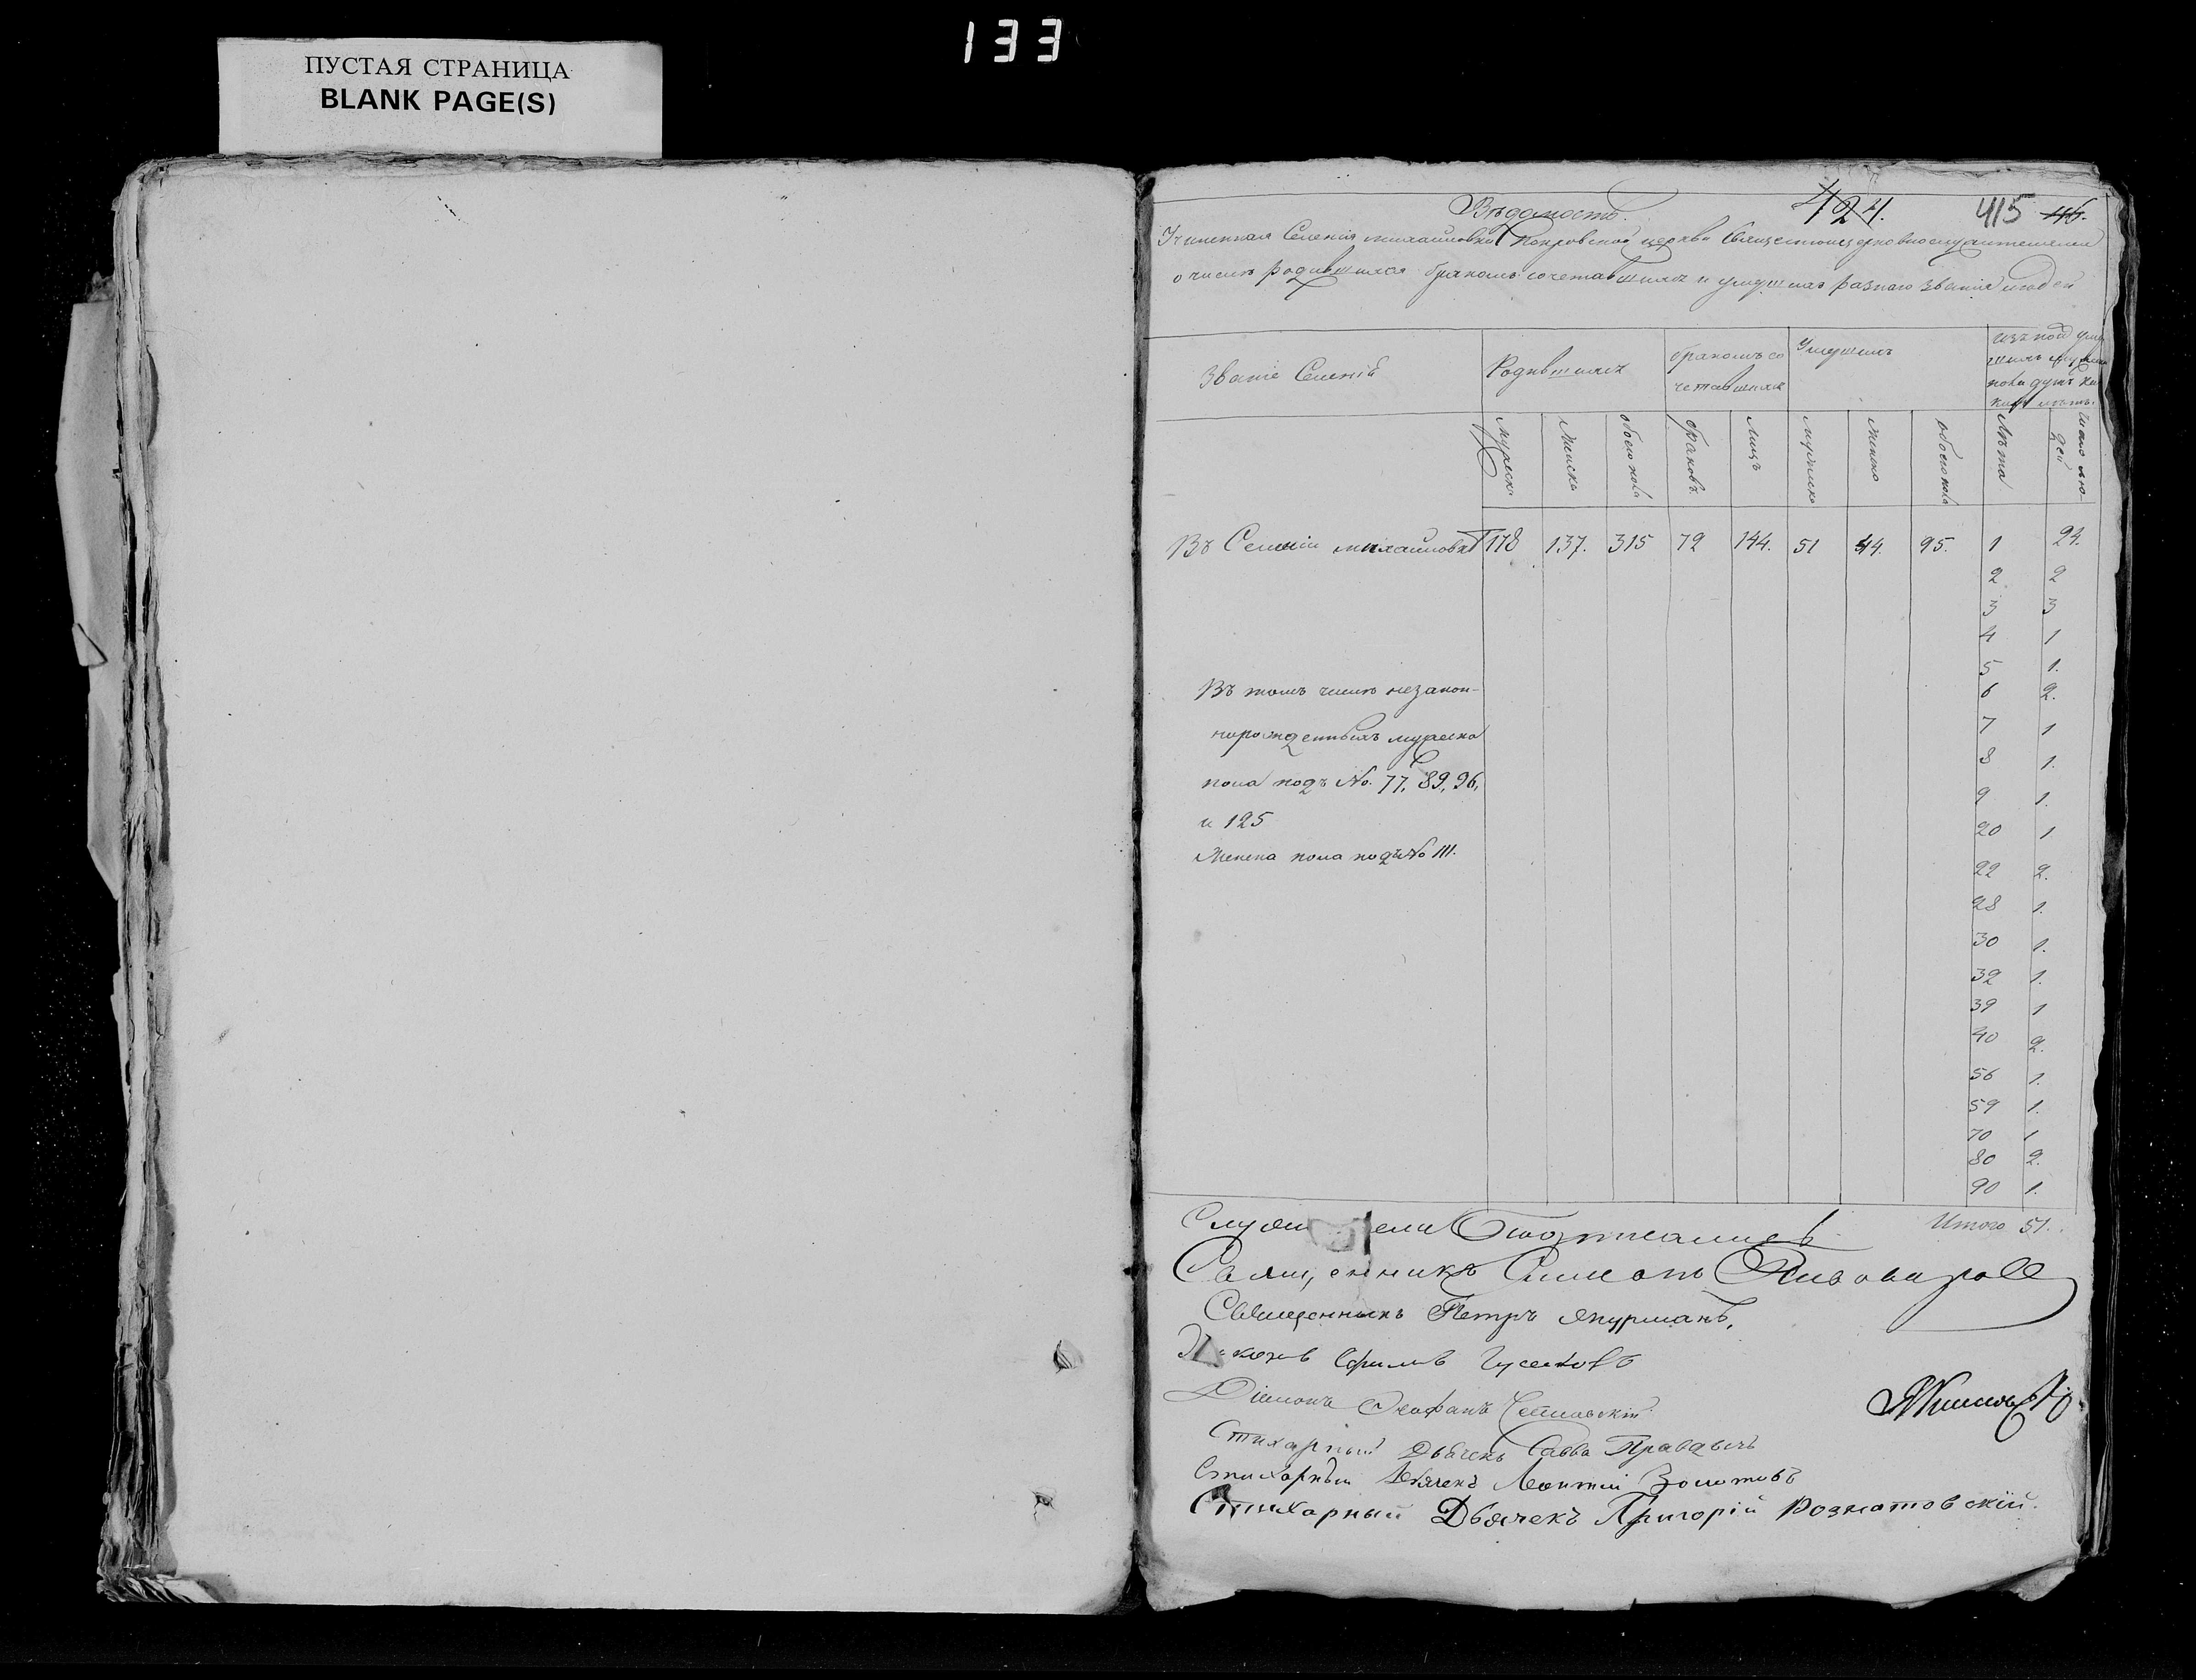 133
ПУСТАЯ СТРАНИЦА
BLANK PAGE(S)
424. 415 416.
Вѣдомость.
Учиненная Селенія михайловки Покровской церкви Священноцерковнослужителями
о числѣ родившихся бракомъ сочетавшихся и умершихъ разнаго званія людей
Званіе Селеній
Родившихся
бракомъ со
четавшихся
Умершихъ
изъ коих
пола душъ
мужеска
женска
обоего пола
браковъ
лицъ
мужеска
женска
обоего пола
Лѣта
Число лю-
дей
Въ Селеніи михайловкѣ 178 137. 315 72 144. 51 44. 95. 1 24.
2 2
3 3
4 1
5 1.
6 2.
7 1
8 1.
9 1.
20 1
22 2.
28 1.
30 1.
32 1.
39 1
40 2.
56 1.
59 1.
70 1
80 2.
90 1.
Въ томъ числѣ незакон-
норожденныхъ мужеска
пола подъ No. 77, 89, 96,
и 125
Женска пола подъ No 111.
Итого 51.
Священникъ Симеонъ Пивоваровъ
Священникъ Петръ Якурманъ,
Гусаковъ
Діаконъ Феофанъ
Стихарный Дьячекъ Савва
Стихарный Дьячекъ Леонтій Золотовъ
Стихарный Дьячекъ Григорій Розматовскій.